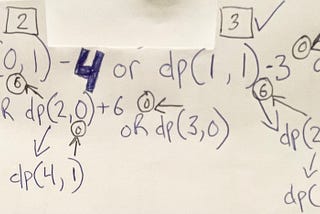 2 3
0, 1) - 4 or dp(1, 1) - 3 0
6 6
R dp(2,0) + 6 0 dp(2
0 OR dp(3,0)
dp(4, 1) dp(